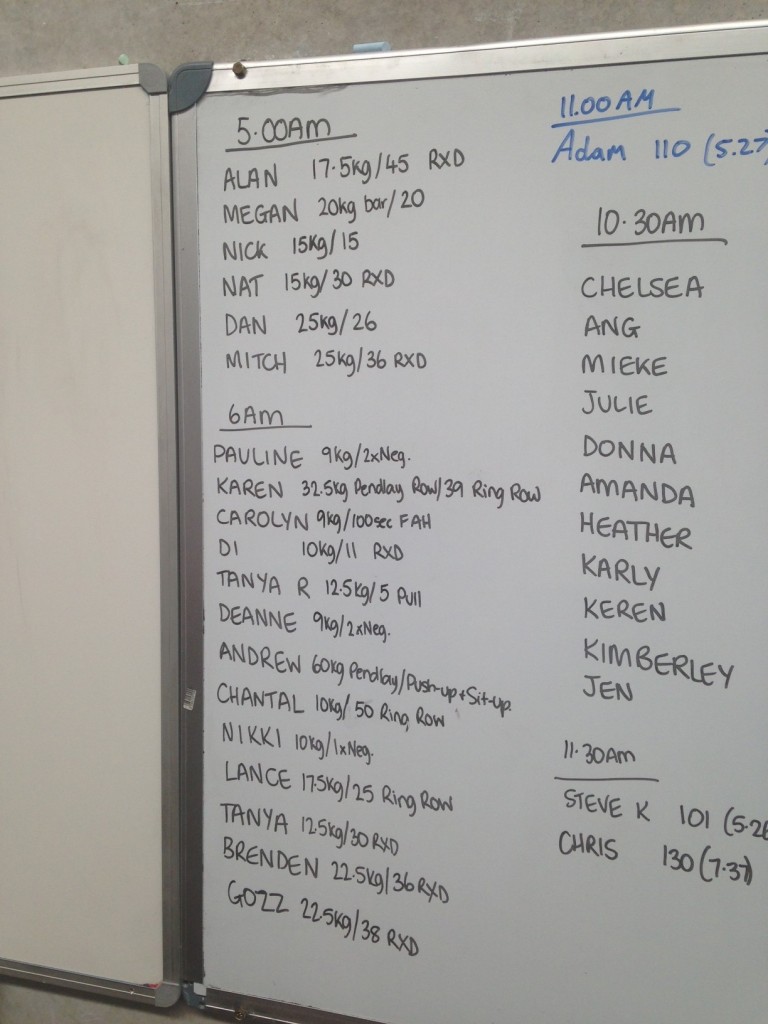 5.00AM
ALAN 17.5kg/45 RXD
MEGAN 20kg bar/20
NICK 15kg/15
NAT 15kg/30 RXD
DAN 25kg/26
MITCH 25kg/36 RXD
6AM
PAULINE 9kg/2xNeg.
KAREN 32.5kg Pendlay Row/39 Ring Row
CAROLYN 9kg/100sec FAH
DI 10kg/11 RXD
TANYA R 12.5kg/5 Pull
DEANNE 9kg/2xNeg.
ANDREW 60kg Pendlay/Push-up+Sit-up
CHANTAL 10kg/50 Ring Row
NIKKI 10kg/1xNeg.
LANCE 17.5kg/25 Ring Row
TANYA 12.5kg/30 RXD
BRENDEN 22.5kg/36 RXD
GOZZ 22.5kg/38 RXD
11.00AM
Adam 110 (5.27
10.30AM
CHELSEA
ANG
MIEKE
JULIE
DONNA
AMANDA
HEATHER
KARLY
KEREN
KIMBERLEY
JEN
11.30am
STEVE K 101 (5.26
CHRIS 130 (7.37)